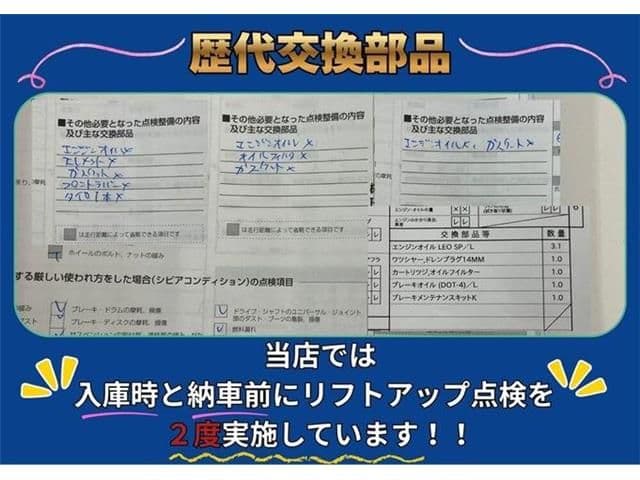 歴代交換部品
■その他必要となった点検整備の内容
及び主な交換部品
エンジンオイル×
エレメント×
ガスケット×
フロントワイパー×
タイヤ1本×
は走行距離によって省略できる項目です
ホイールのボルト、ナットの緩み
■その他必要となった点検整備の内容
及び主な交換部品
エンジンオイル×
オイルフィルタ×
ガスケット×
は走行距離によって省略できる項目です
■その他必要となった点検整備の内容
及び主な交換部品
エンジンオイル×、ガスケット×
交換部品等 数量
エンジンオイル LEO SP/L 3.1
ワツシヤー,ドレンプラグ14MM 1.0
カートリツジ,オイルフイルター 1.0
ブレーキオイル (DOT-4)/L 1.0
ブレーキメンテナンスキットK 1.0
する厳しい使われ方をした場合(シビアコンディション)の点検項目
ブレーキ・ドラムの摩耗、損傷
ブレーキ・ディスクの摩耗、損傷
ドライブ・シャフトのユニバーサル・ジョイント
部のダスト・ブーツの亀裂、損傷
燃料漏れ
当店では
入庫時と納車前にリフトアップ点検を
2度実施しています！！